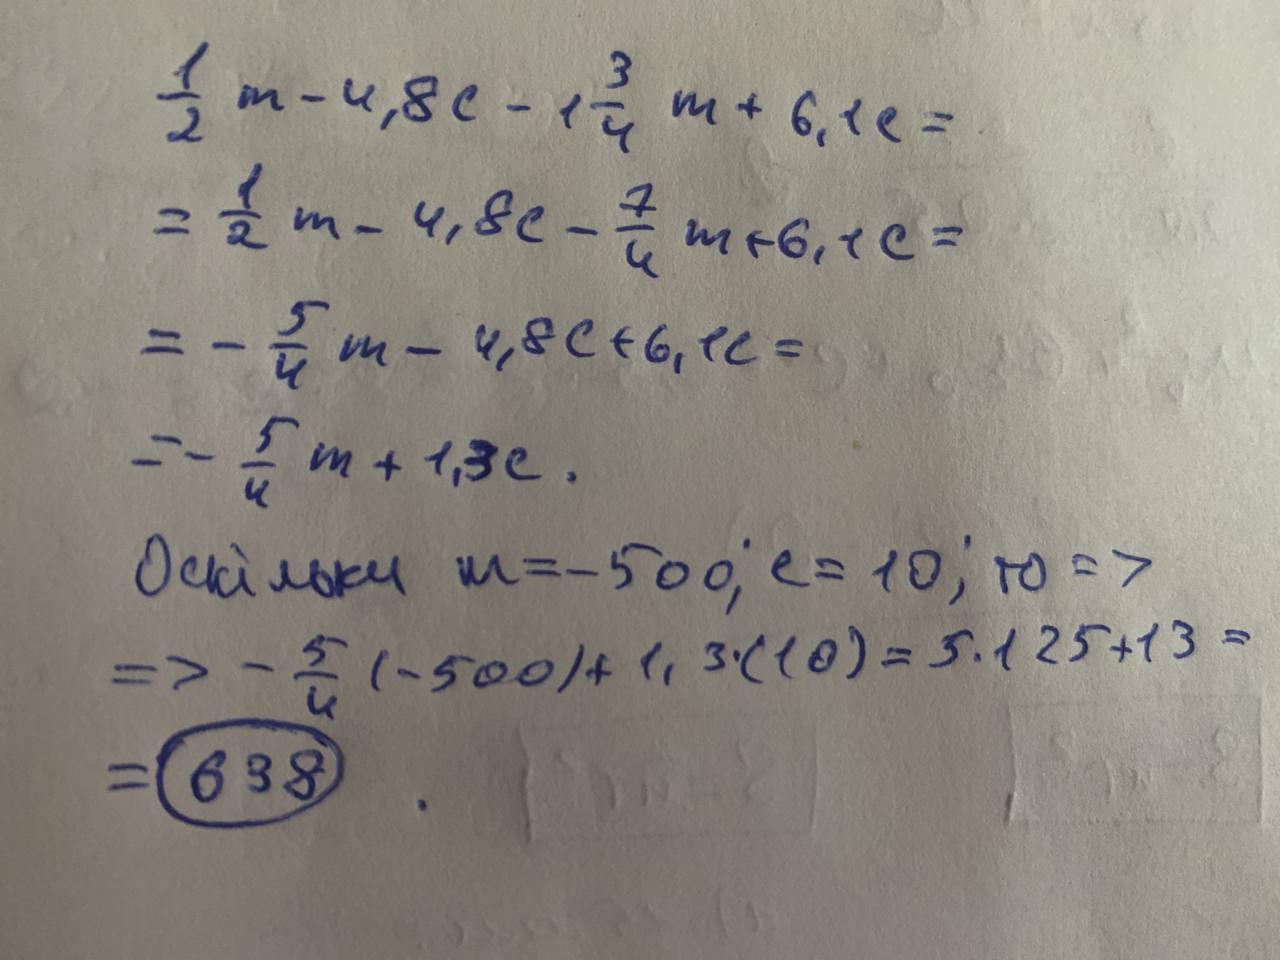 1/2 m - 4,8c - 1 3/4 m + 6,1c =
= 1/2 m - 4,8c - 7/4 m + 6,1c =
= - 5/4 m - 4,8c + 6,1c =
= - 5/4 m + 1,3c .
Оскільки m = -500; c = 10; то =>
=> - 5/4 (-500) + 1,3·(10) = 5·125 + 13 =
= 638 .